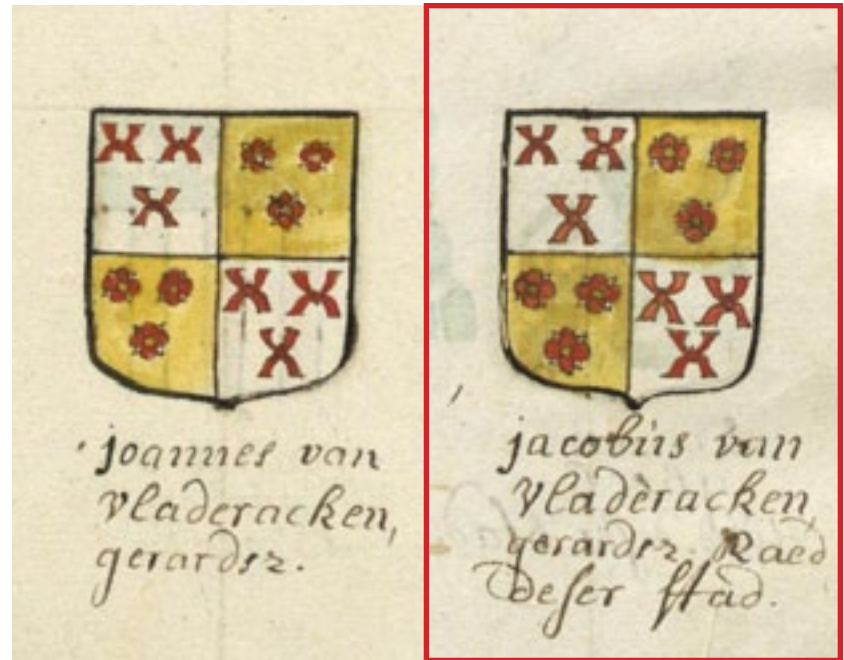 joannes van
vladeracken,
gerardsz.
jacobus van
vladeracken,
gerardsz. Raed
deser stad.